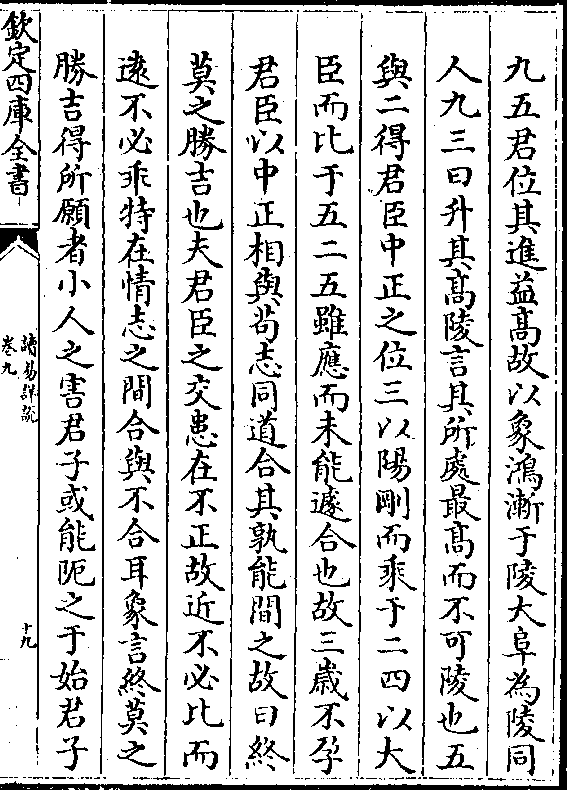 九五君位其進益髙故以象鴻漸于陵大阜為陵同
人九三曰升其髙陵言其所處最髙而不可陵也五
與二得君臣中正之位三以陽剛而乘于二四以大
臣而比于五二五雖應而未能遽合也故三嵗不孕
君臣以中正相與茍志同道合其孰能間之故曰終
莫之勝吉也夫君臣之交患在不正故近不必比而
逺不必乖特在情志之間合與不合耳象言終莫之
勝吉得所願者小人之害君子或能阨之于始君子
欽定四庫全書
讀易詳説
卷九
十九